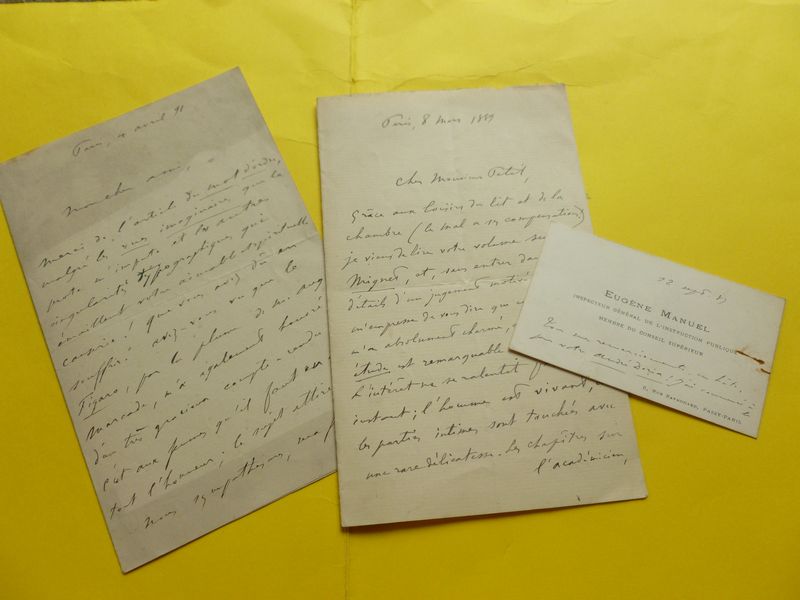 Paris, 4 avril 91
Mon cher ami,
Merci de l'article du mot d'ordre,
malgré les vues imaginaires que la
prote m'impute et les autres
singularités typographiques qui
émaillent votre aimable et spirituelle
causerie, (que vous avez dû en
souffrir! avez-vous vu que le
Figaro, par la plume de
Marcade, m'a également honoré
d'un très gracieux compte-rendu
c'est aux femmes qu'il faut en
tout l'honneur; le sujet attire
nous sympathisons, ma
Paris, 8 mars 1889
Cher Monsieur Petit,
Grâce aux loisirs du lit et de la
chambre (le mal a ses compensations)
je viens de lire votre volume sur
Mignet, et, sans entrer dans
détails d'un jugement motivé
m'empresse de vous dire que
m'a absolument charmé,
étude est remarquable
L'intérêt ne se ralentit
instant; l'homme est vivant,
les parties intimes sont touchées avec
une rare délicatesse. Les chapitres sur
l'académicien,
EUGÈNE MANUEL
INSPECTEUR GÉNÉRAL DE L'INSTRUCTION PUBLIQUE
MEMBRE DU CONSEIL SUPÉRIEUR
Tous mes remerciements,
sur votre André Doria; j'ai commencé à
PASSY-PARIS